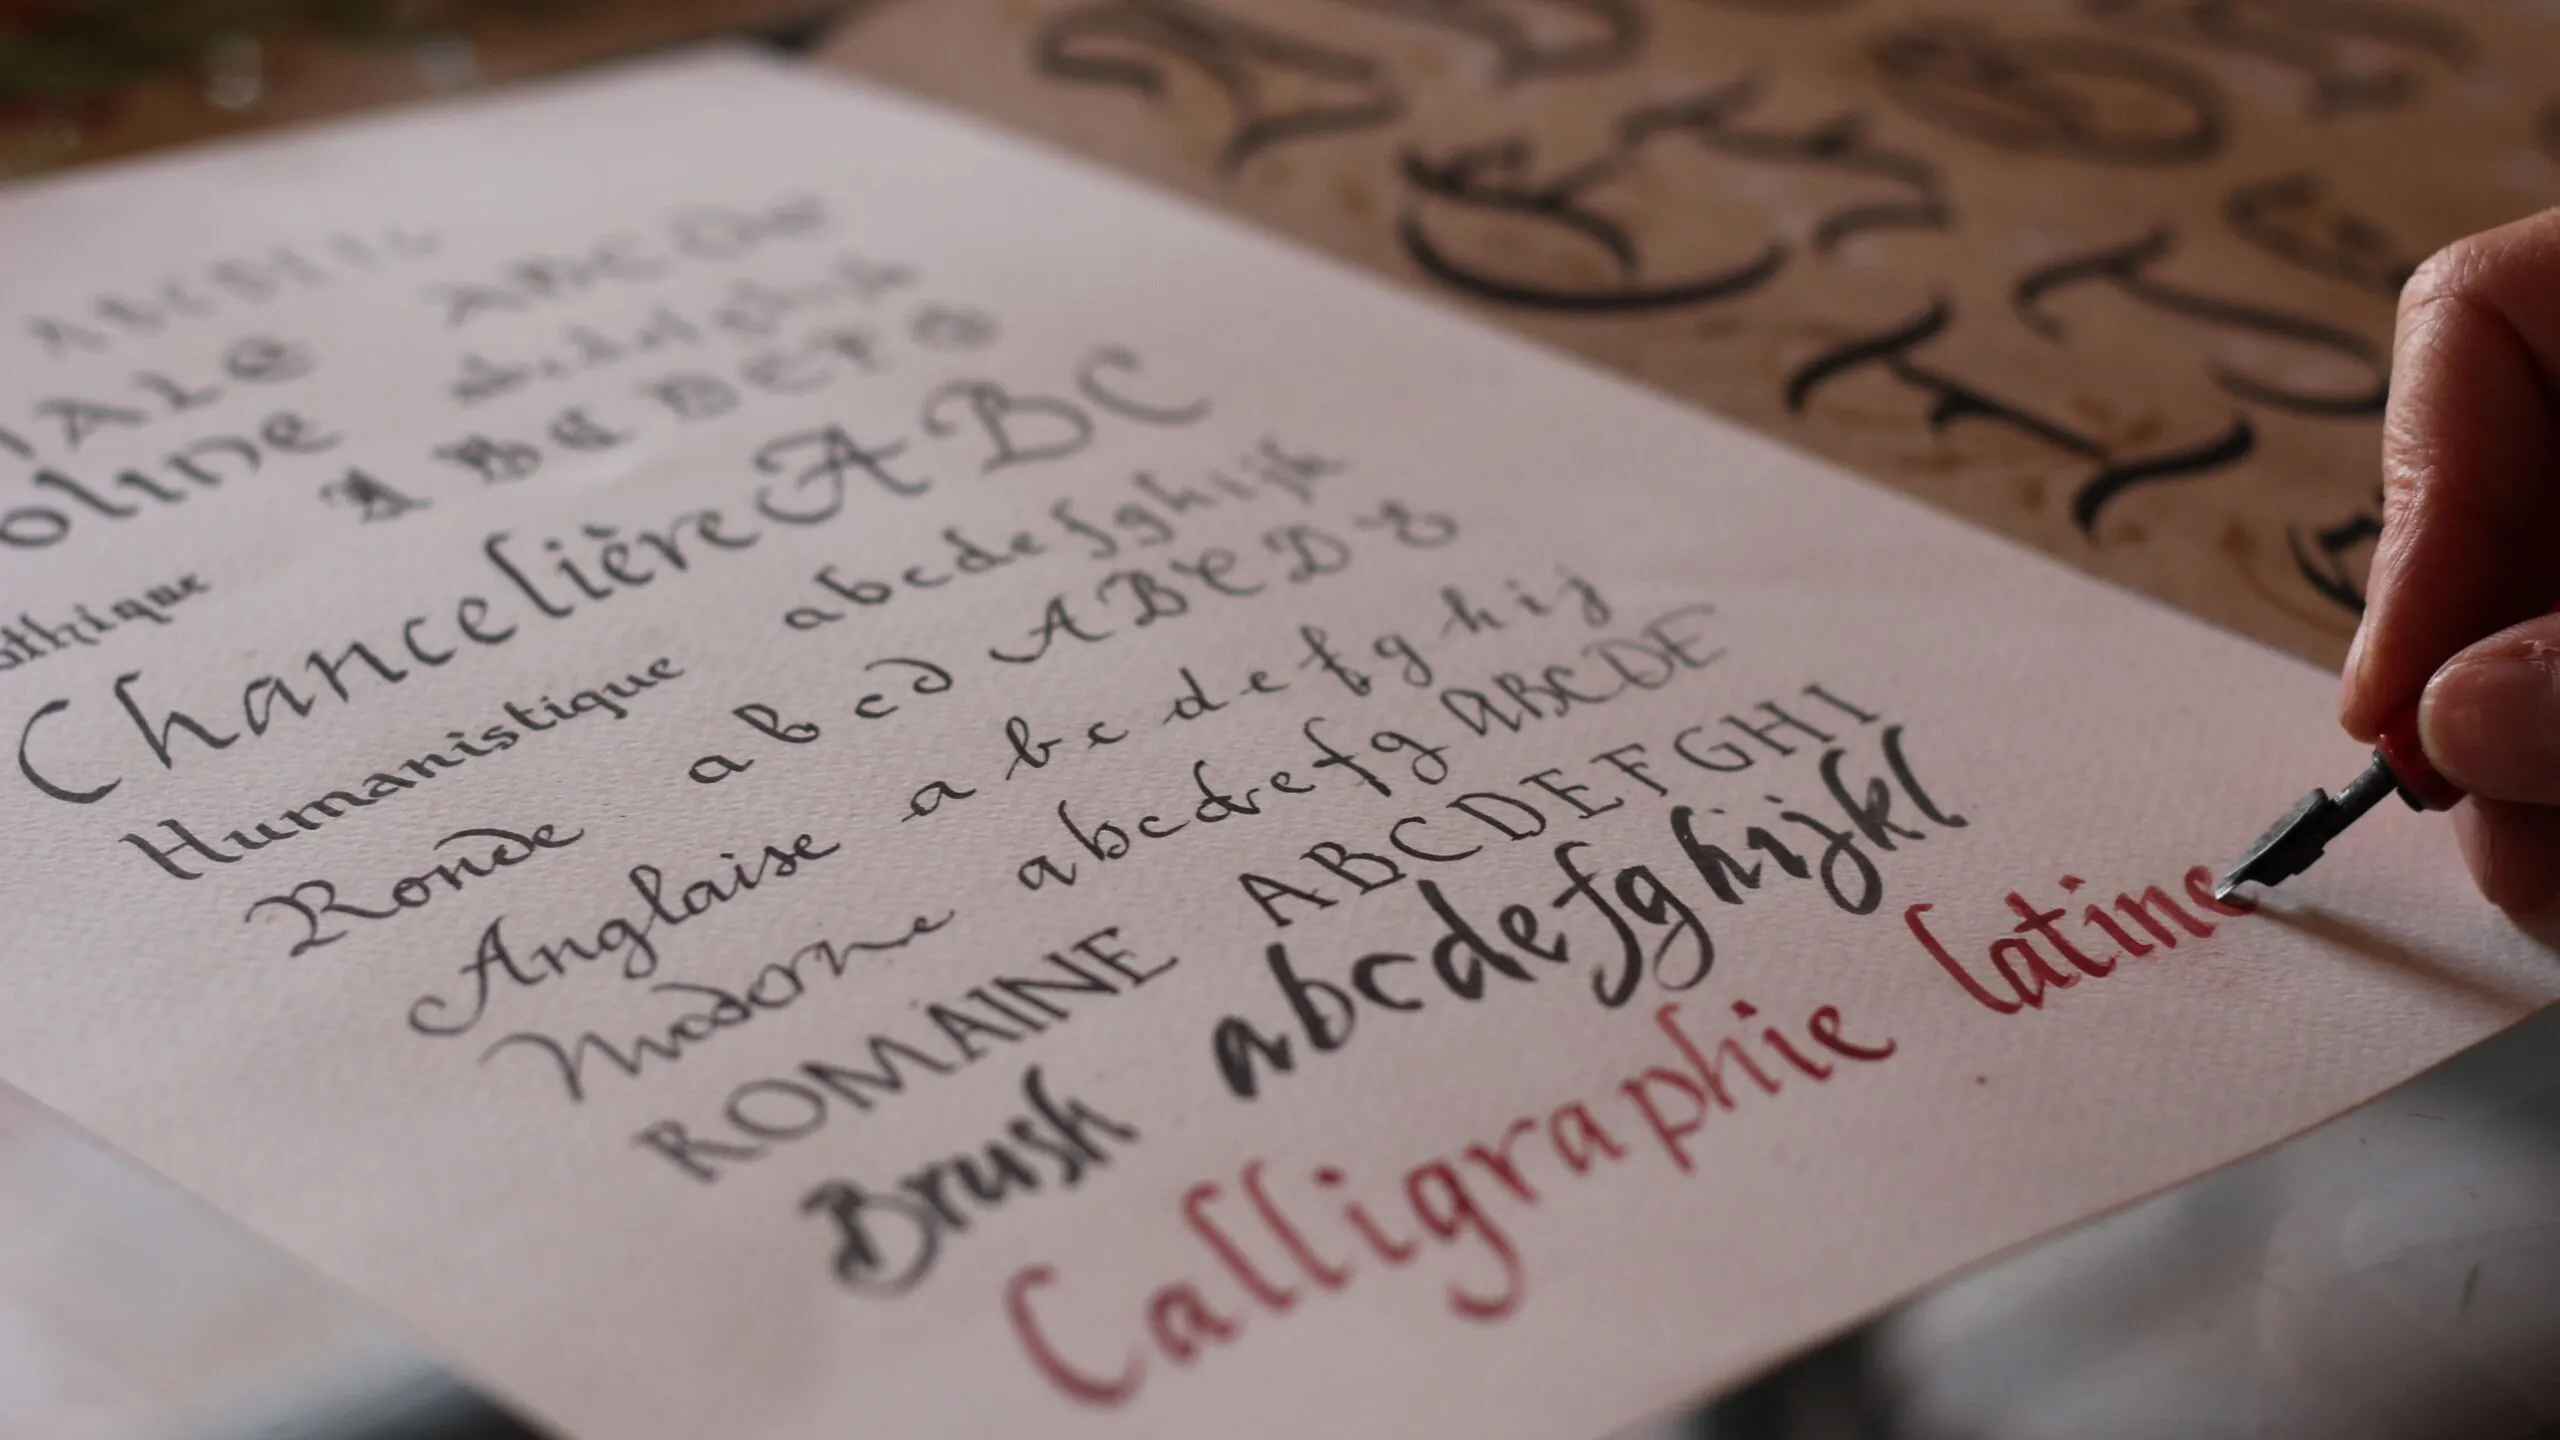 ABCDEFG
IALE ABCDE
oline abcdefghijk
othique A B C D E F G
Chancelière A B C
Humanistique abcdefghijk
Ronde a b c d A B C D E
Anglaise a b c d e f g h i j
Madone abcdefg ABCDE
ROMAINE ABCDEFGHI
Brush abcdefghijkl
Calligraphie latine